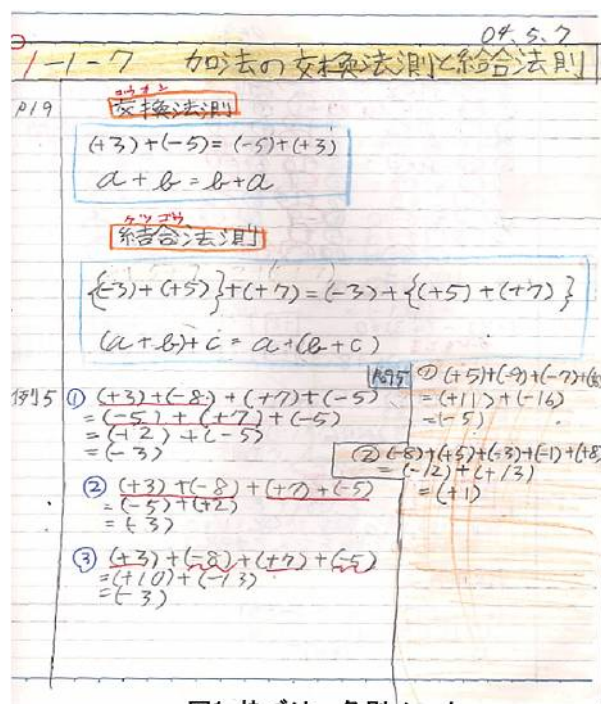 04.5.7
1-1-7 加法の交換法則と結合法則
P19
コウカン
交換法則
(+3)+(-5)=(-5)+(+3)
a+b=b+a
ケツゴウ
結合法則
{(-3)+(+5)}+(+7)=(-3)+{(+5)+(+7)}
(a+b)+c=a+(b+c)
例5 ① (+3)+(-8)+(+7)+(-5)
=(-5)+(+7)+(-5)
=(+2)+(-5)
=(-3)
② (+3)+(-8)+(+7)+(-5)
=(-5)+(+2)
=(-3)
③ (+3)+(-8)+(+7)+(-5)
=(+10)+(-13)
=(-3)
問5 ① (+5)+(-9)+(-7)+(+6)
=(+11)+(-16)
=(-5)
② (-8)+(+5)+(-3)+(-1)+(+8)
=(-12)+(+13)
=(+1)